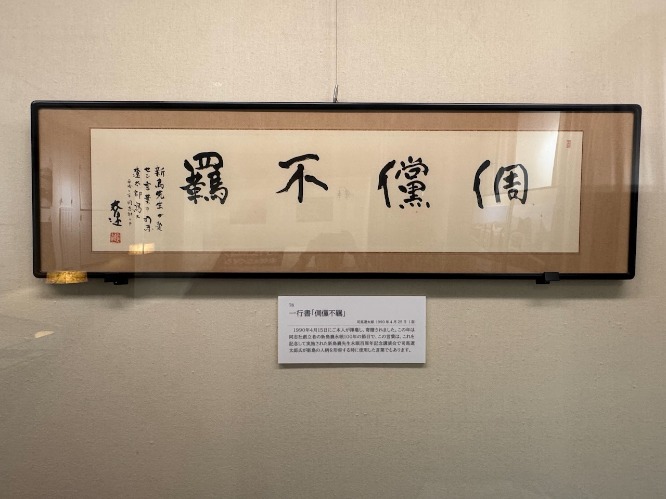 倜儻不羈
新島先生が愛
せし言葉の
一行書「倜儻不羈」
1990年4月15日にご本人が揮毫し、寄贈されました。この年は
同志社創立者の新島襄永眠100年の節目で、この言葉は、これを
記念して実施された新島襄先生永眠百周年記念講演会で司馬遼
太郎氏が新島の人柄を形容する時に使用した言葉でもあります。